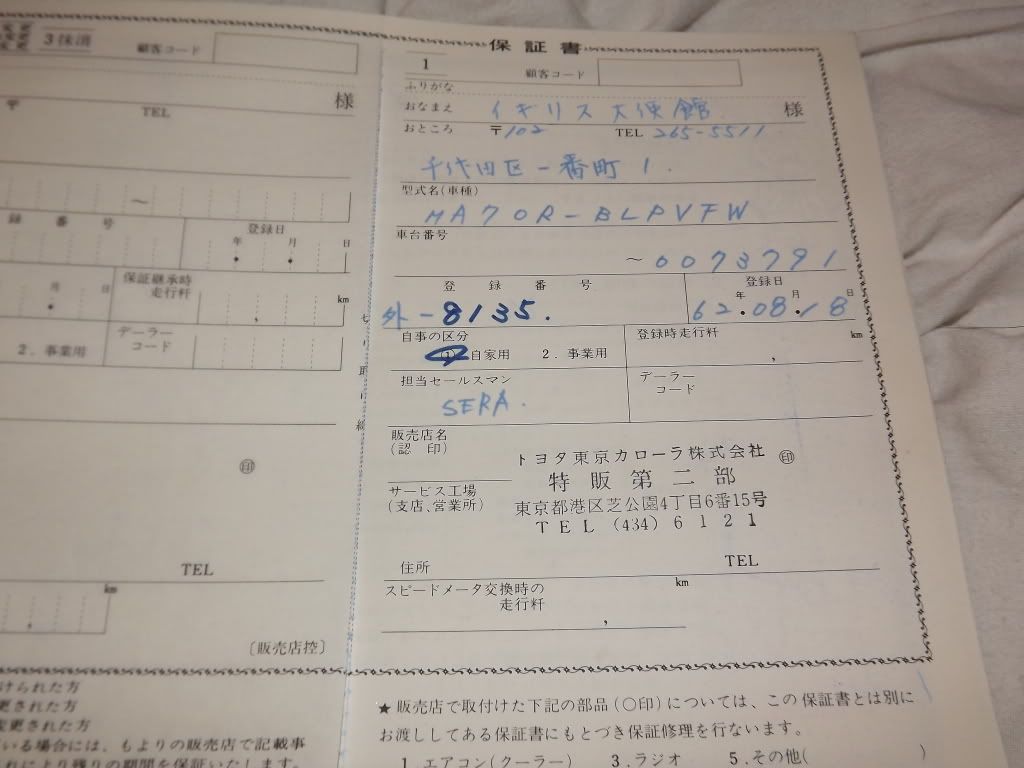 3 抹消
顧客コード
様
〒
TEL
～
録 番 号
登録日
年 月 日
保証継承時
走行粁
km
2. 事業用
デーラー
コード
印
TEL
km
〔販売店控〕
けられた方
更された方
変更された方
いる場合には、もよりの販売店で記載事
れにより残りの期間を保証いたします。
切り取り線
保証書
1
顧客コード
ふりがな
おなまえ イギリス大使館 様
おところ 〒102 TEL 265-5511
千代田区一番町1.
型式名(車種)
MA70R-BLPVFW
車台番号
～0073791
登録番号
登録日
年 月 日
外-8135.
62.08.18
自事の区分
① 自家用 2. 事業用
登録時走行粁
km
担当セールスマン
SERA.
デーラー
コード
販売店名
(認 印)
トヨタ東京カローラ株式会社 印
特販第二部
サービス工場
(支店、営業所)
東京都港区芝公園4丁目6番15号
TEL (434) 6121
住所
TEL
スピードメータ交換時の
走行粁
km
★販売店で取付けた下記の部品(○印)については、この保証書とは別に
お渡ししてある保証書にもとづき保証修理を行ないます。
1.エアコン(クーラー) 3.ラジオ 5.その他( )